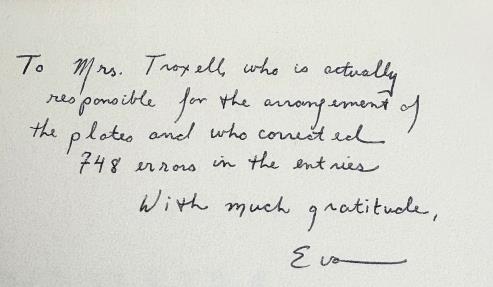 To Mrs. Troxell, who is actually
responsible for the arrangement of
the plates and who corrected
748 errors in the entries
With much gratitude,
Eva